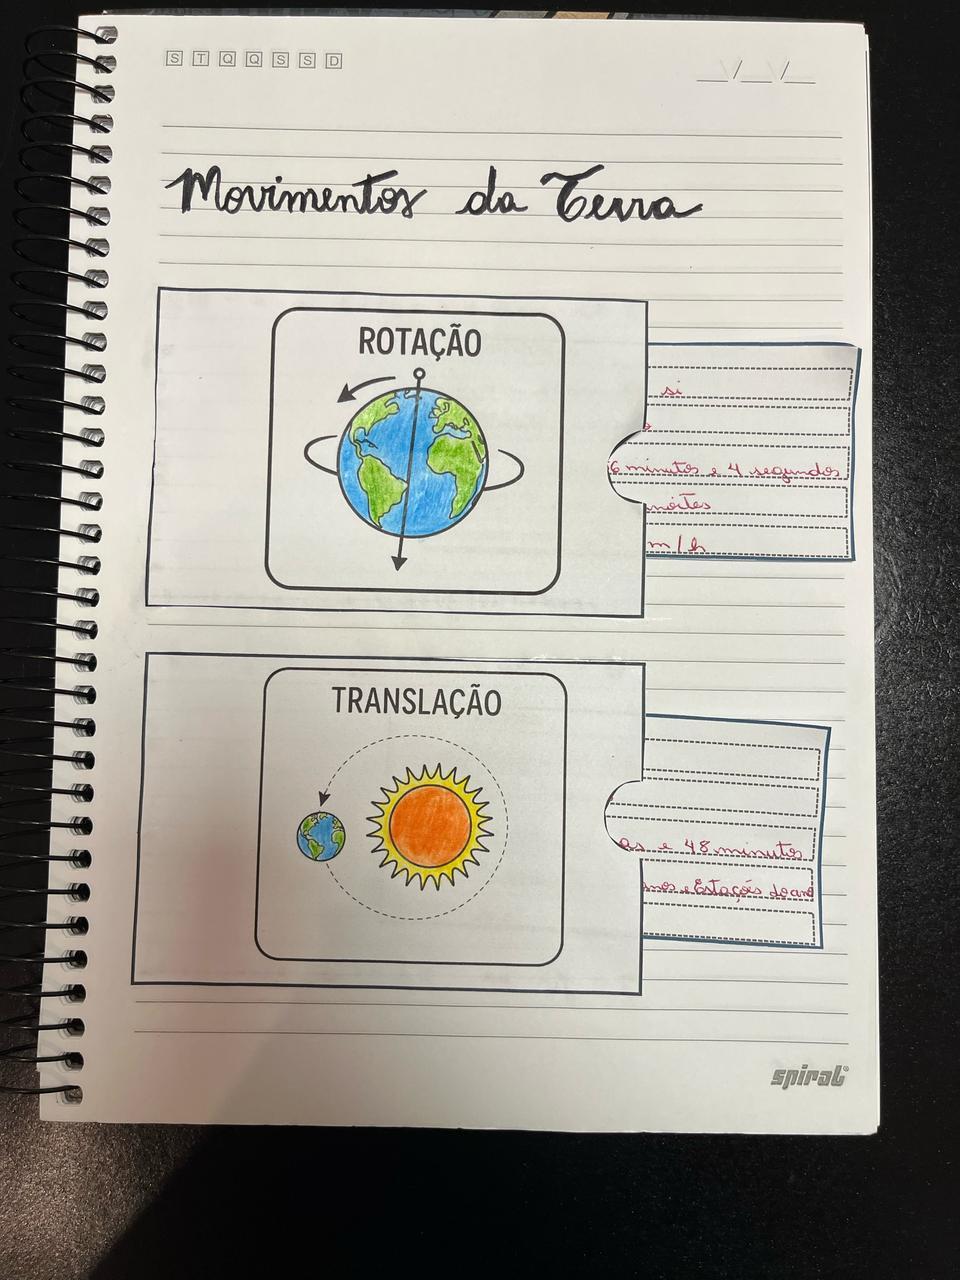 S T Q Q S S D
__/__/__
Movimentos da Terra
ROTAÇÃO
si
6 minutos e 4 segundos
noites
m/h
TRANSLAÇÃO
as e 48 minutos
nos e Estações do ano
spiral®